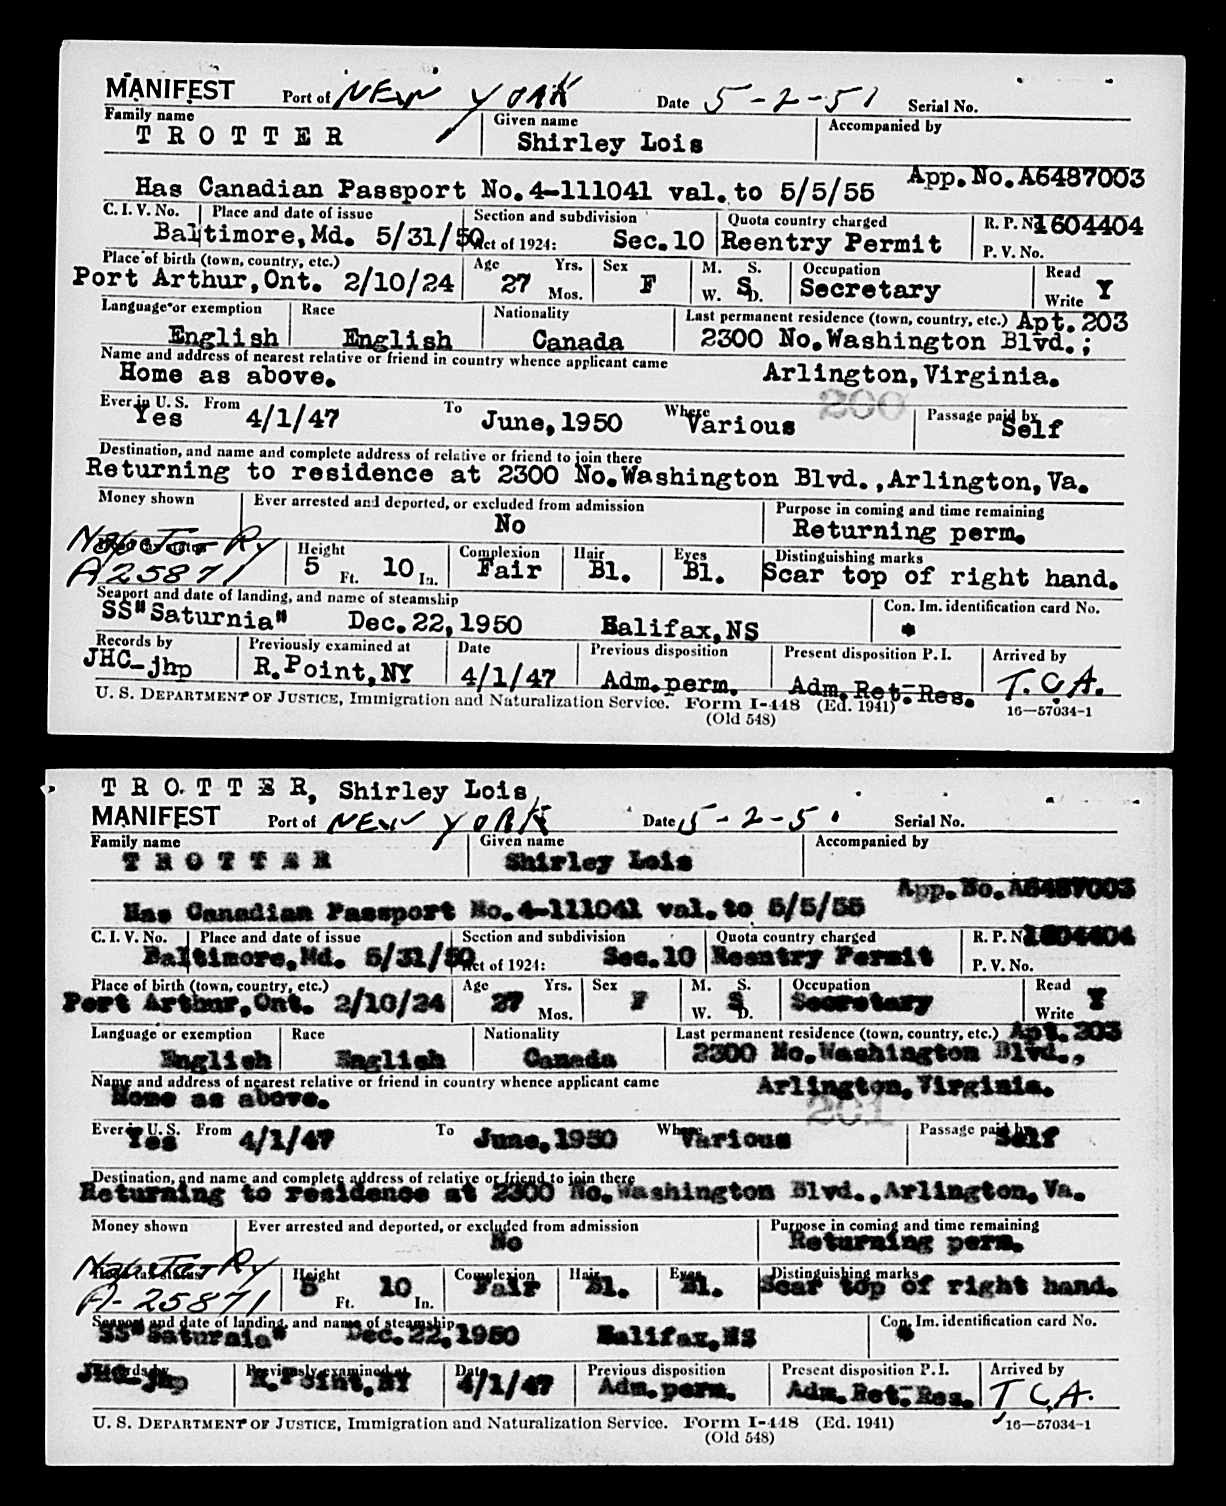 MANIFEST Port of NEW YORK Date 5-2-51 Serial No.
Family name Given name Accompanied by
T R O T T E R Shirley Lois
App. No. A6487003
Has Canadian Passport No. 4-111041 val. to 5/5/55
C. I. V. No. Place and date of issue Section and subdivision Quota country charged R. P. No. 1604404
Baltimore, Md. 5/31/50 Act of 1924: Sec. 10 Reentry Permit P. V. No.
Place of birth (town, country, etc.) Age Yrs. Sex M. S. Occupation Read
Port Arthur, Ont. 2/10/24 27 Mos. F W. S D. Secretary Write Y
Language or exemption Race Nationality Last permanent residence (town, country, etc.) Apt. 203
English English Canada 2300 No. Washington Blvd.;
Name and address of nearest relative or friend in country whence applicant came
Home as above. Arlington, Virginia.
200
Ever in U. S. From To Where Passage paid by
Yes 4/1/47 June, 1950 Various Self
Destination, and name and complete address of relative or friend to join there
Returning to residence at 2300 No. Washington Blvd., Arlington, Va.
Money shown Ever arrested and deported, or excluded from admission Purpose in coming and time remaining
No Returning perm.
Height Complexion Hair Eyes Distinguishing marks
A 25871 5 Ft. 10 In. Fair Bl. Bl. Scar top of right hand.
Seaport and date of landing, and name of steamship Con. Im. identification card No.
SS"Saturnia" Dec. 22, 1950 Halifax, NS *
Records by Previously examined at Date Previous disposition Present disposition P. I. Arrived by
JHC-jhp R. Point, NY 4/1/47 Adm. perm. Adm. Ret. Res. T.C.A.
U. S. DEPARTMENT OF JUSTICE, Immigration and Naturalization Service. Form I-448 (Ed. 1941) 16—57034-1
(Old 548)
T R O T T E R, Shirley Lois
MANIFEST Port of NEW YORK Date 5-2-51 Serial No.
Family name Given name Accompanied by
T R O T T E R Shirley Lois
App. No. A6487003
Has Canadian Passport No. 4-111041 val. to 5/5/55
C. I. V. No. Place and date of issue Section and subdivision Quota country charged R. P. No. 1604404
Baltimore, Md. 5/31/50 Act of 1924: Sec. 10 Reentry Permit P. V. No.
Place of birth (town, country, etc.) Age Yrs. Sex M. S. Occupation Read
Port Arthur, Ont. 2/10/24 27 Mos. F W. S D. Secretary Write Y
Language or exemption Race Nationality Last permanent residence (town, country, etc.) Apt. 203
English English Canada 2300 No. Washington Blvd.,
Name and address of nearest relative or friend in country whence applicant came
Home as above. Arlington, Virginia.
201
Ever in U. S. From To Where Passage paid by
Yes 4/1/47 June, 1950 Various Self
Destination, and name and complete address of relative or friend to join there
Returning to residence at 2300 No. Washington Blvd., Arlington, Va.
Money shown Ever arrested and deported, or excluded from admission Purpose in coming and time remaining
No Returning perm.
Height Complexion Hair Eyes Distinguishing marks
A-25871 5 Ft. 10 In. Fair Bl. Bl. Scar top of right hand.
Seaport and date of landing, and name of steamship Con. Im. identification card No.
SS"Saturnia" Dec. 22, 1950 Halifax, NS *
Records by Previously examined at Date Previous disposition Present disposition P. I. Arrived by
JHC-jhp R. Point, NY 4/1/47 Adm. perm. Adm. Ret. Res. T.C.A.
U. S. DEPARTMENT OF JUSTICE, Immigration and Naturalization Service. Form I-448 (Ed. 1941) 16—57034-1
(Old 548)